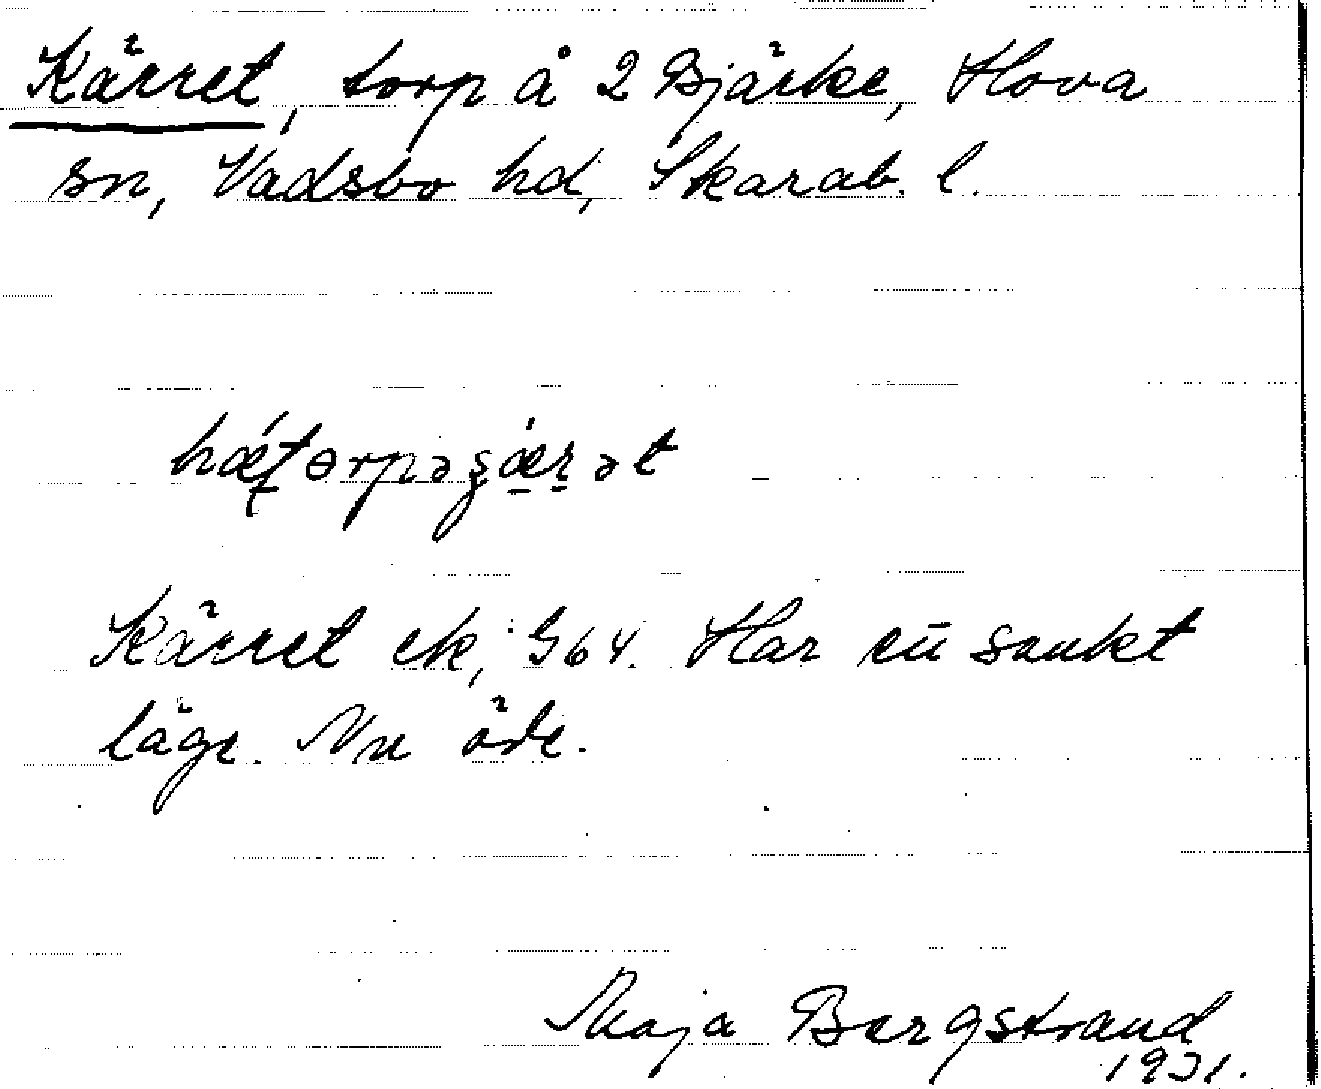 Kärret, torp å 2 Bjärke, Hova
sn, Vadsbo hd, Skarab. l.
Kärret ek, G64. Har ett sankt
läge. Nu öde.
Maja Bergstrand
1931.